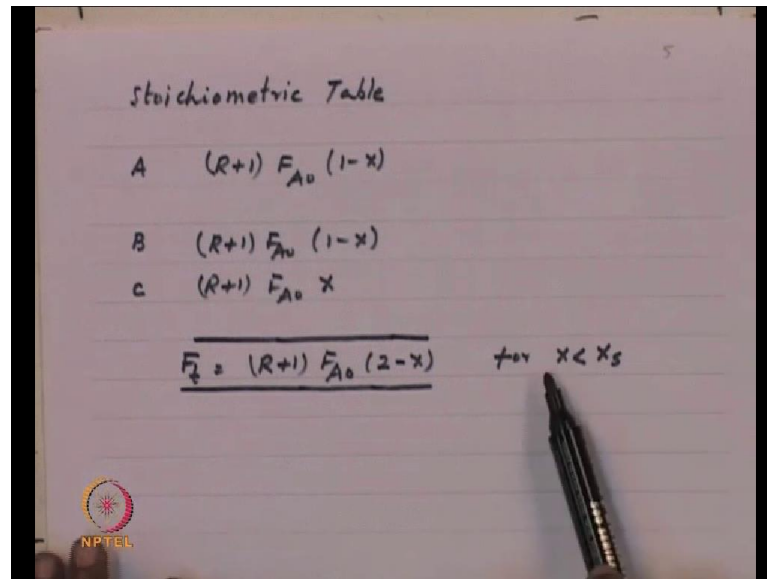 5
Stoichiometric Table
A (R+1) F_A0 (1-x)
B (R+1) F_A0 (1-x)
C (R+1) F_A0 x
F_t = (R+1) F_A0 (2-x) for x < x_s
NPTEL